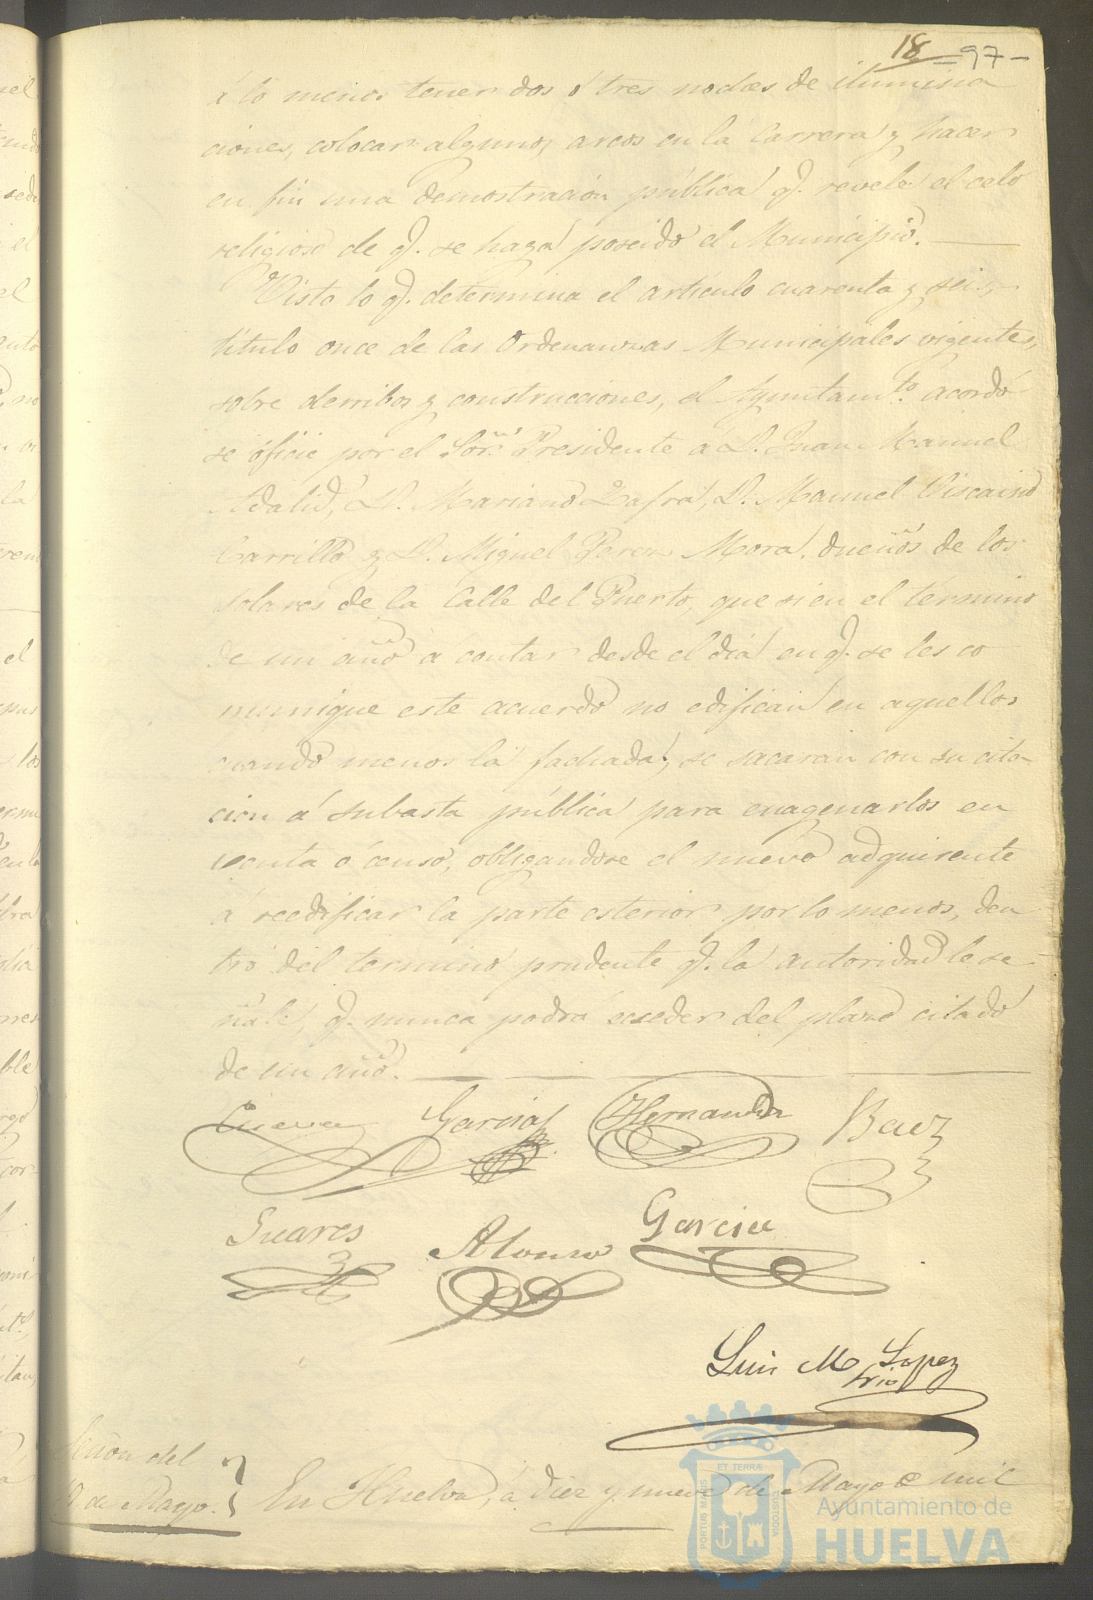 18 - 97 -
á lo menos tener dos ó tres noches de ilumina
ciones, colocar algunos arcos en la Carrera y hacer
en fin una demostración pública q. revele el celo
religioso de q. se haya poseido el Municipio.
Visto lo q. determina el artículo cuarenta y seis,
título once de las Ordenanzas Municipales vigentes,
sobre derribos y construcciones, el Ayuntamto. acordó
se oficie por el Sor. Presidente a D. Juan Manuel
Adalid, D. Mariano Zafra, D. Manuel Viscaino
Carrillo y D. Miguel Perez Mora, dueños de los
solares de la Calle del Puerto, que si en el término
de un año á contar desde el día en q. se les co
munique este acuerdo no edifican en aquellos
cuando menos la fachada, se sacarán con su cita-
cion á subasta pública para enagenarlos en
venta ó censo, obligandose el nuevo adquirente
á reedificar la parte esterior por lo menos, den
tro del termino prudente q. la autoridad le se-
ñale, q. nunca podrá esceder del plazo citado
de un año.
Garcia Hernandez Baez
Suares Alonso Garcia
Luis M Lopez
srio
Sesion del
19 de Mayo.
En Huelva, á diez y nueve de Mayo de mil
PORTUS MARIS ET TERRÆ CUSTODIA
Ayuntamiento de
HUELVA